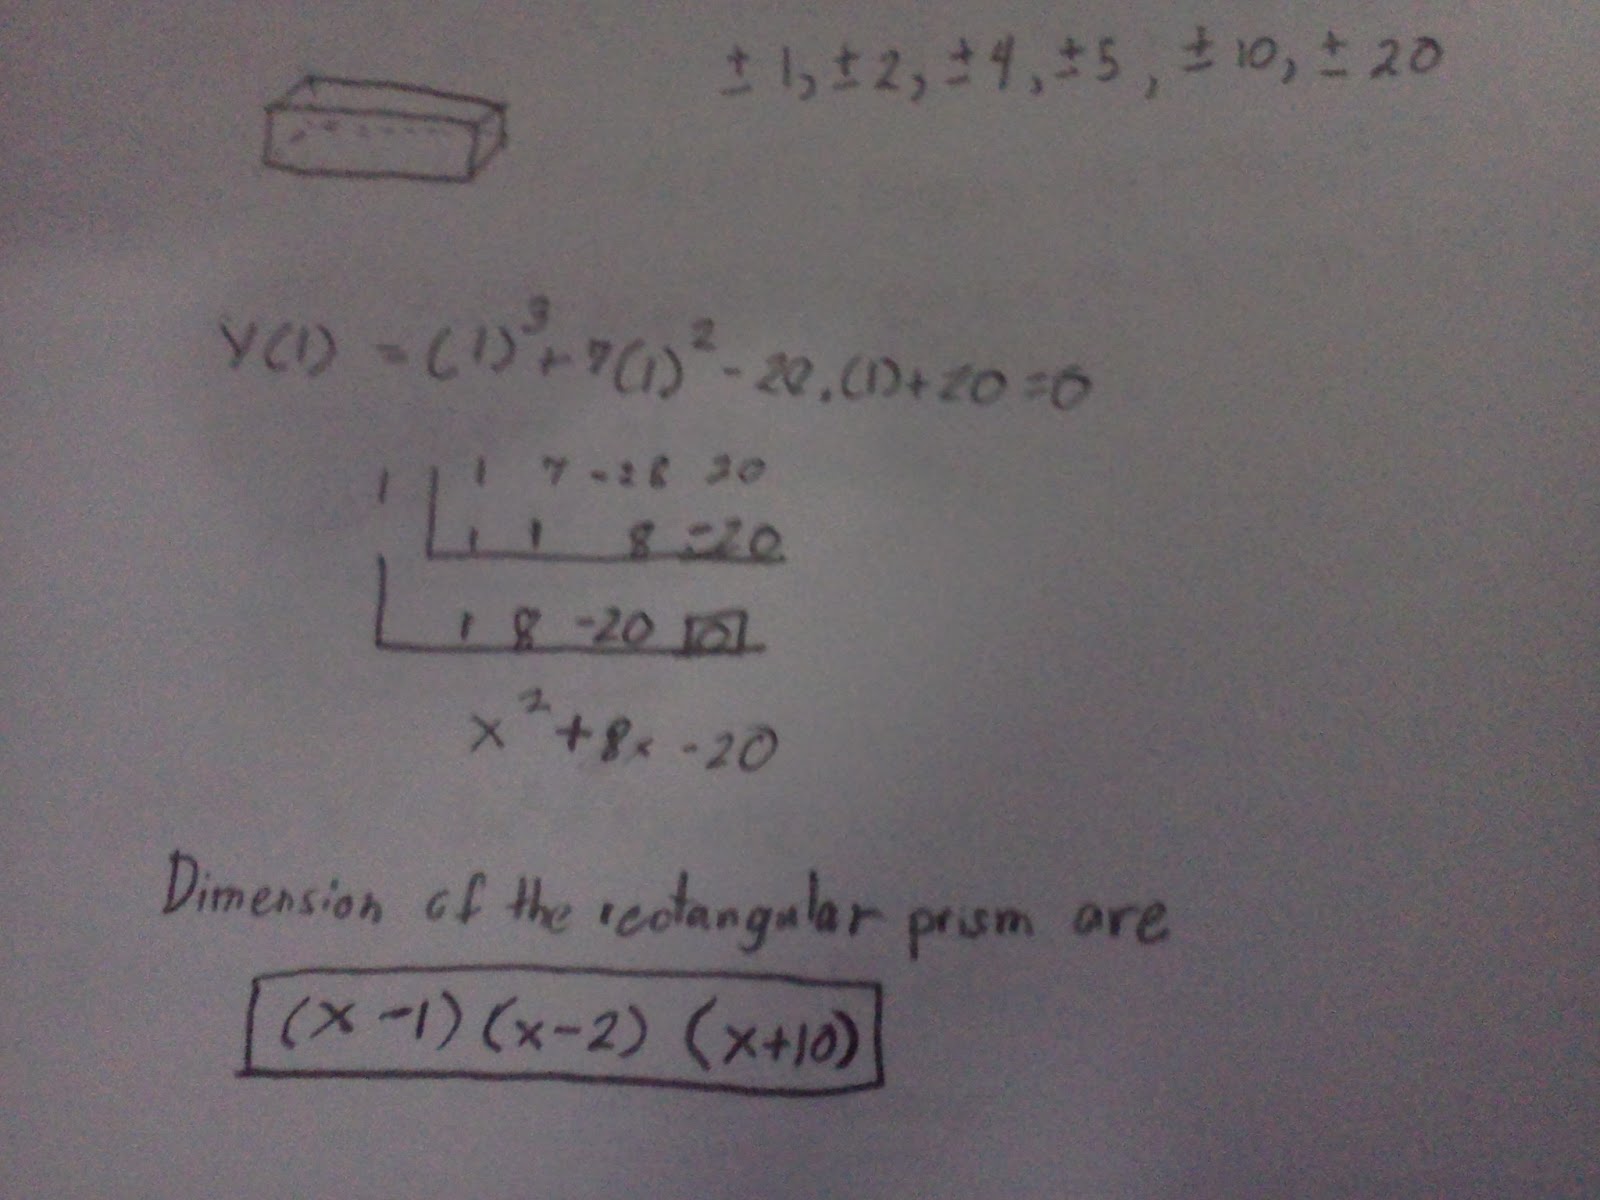 ± 1, ± 2, ± 4, ± 5, ± 10, ± 20
V(1) = (1)³ + 7(1)² - 20.(1) + 20 = 0
1 1 7 -28 20
1 1 8 -20
1 8 -20 0
x² + 8x - 20
Dimension of the rectangular prism are
(x - 1) (x - 2) (x + 10)